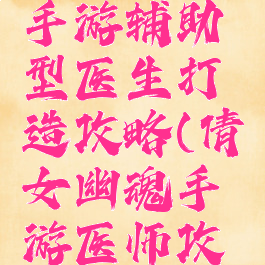 手游辅助
型医生打
造攻略(倩
女幽魂手
游医师攻